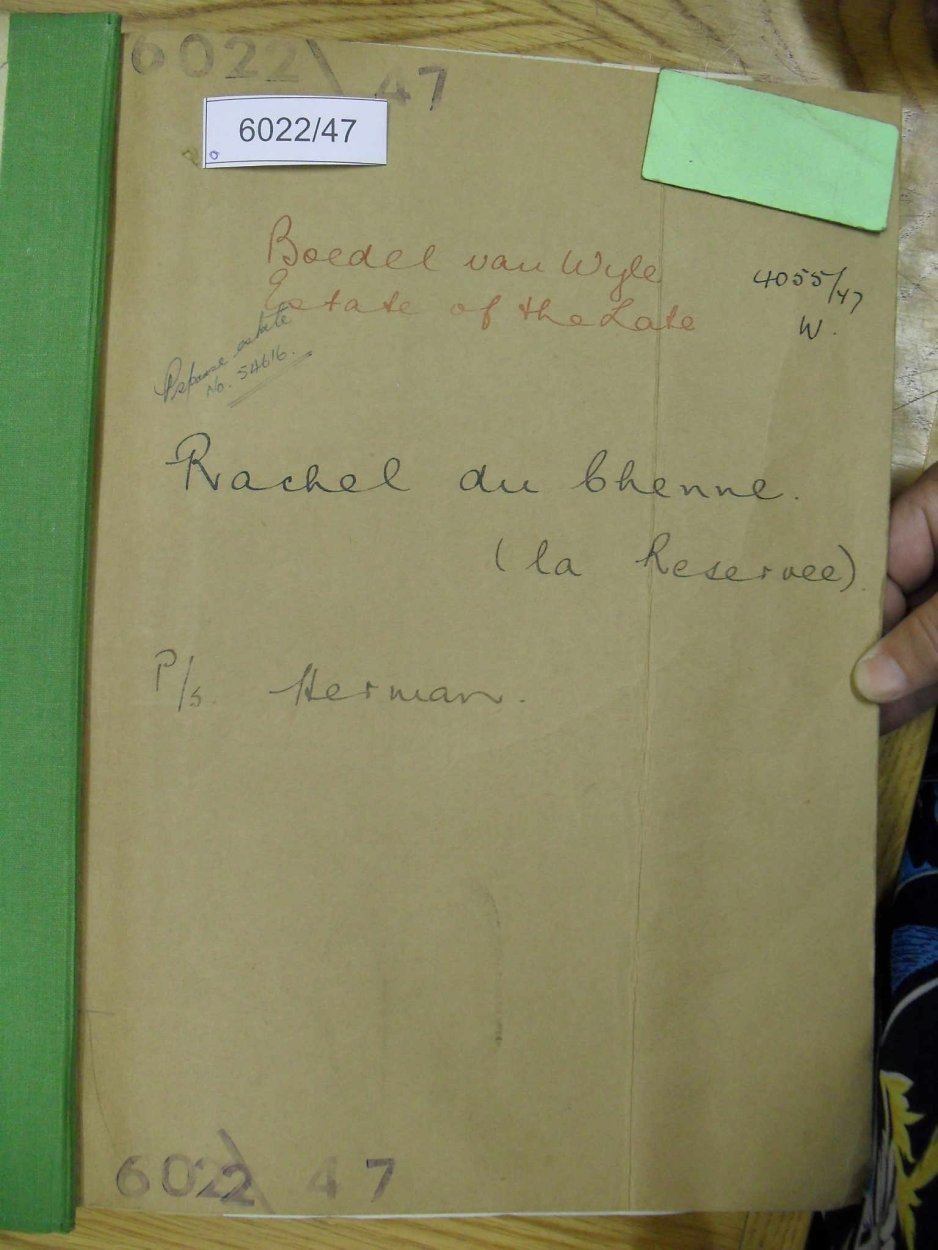 6022\ 47
6022/47
Boedel van Wyle
Estate of the Late
4055/47
W.
estate
No. 54616.
Rachel du Chenne.
(la Reservee)
P/s. Herman.
6022\ 47